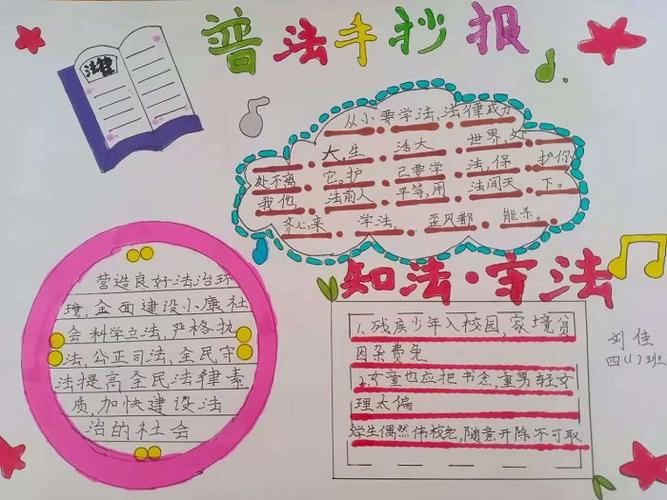 普法手抄报
法律
从小要学法,法律威力
大,生 活大 世界,处
处不离 它。护 己要学 法,保 护你
我他, 法前人 平等,用 法闯天 下。
齐心来 学法, 歪风都 能杀。
知法·守法
营造良好法治环
境,全面建设小康社
会科学立法,严格执
法,公正司法,全民守
法提高全民法律素
质,加快建设法
治的社会
1、残疾少年入校园,家境贫
因杂费免
2,女童也应把书念,重男轻女
理太偏
学生偶然伤校纪,随意开除不可取
刘佳
四(1)班